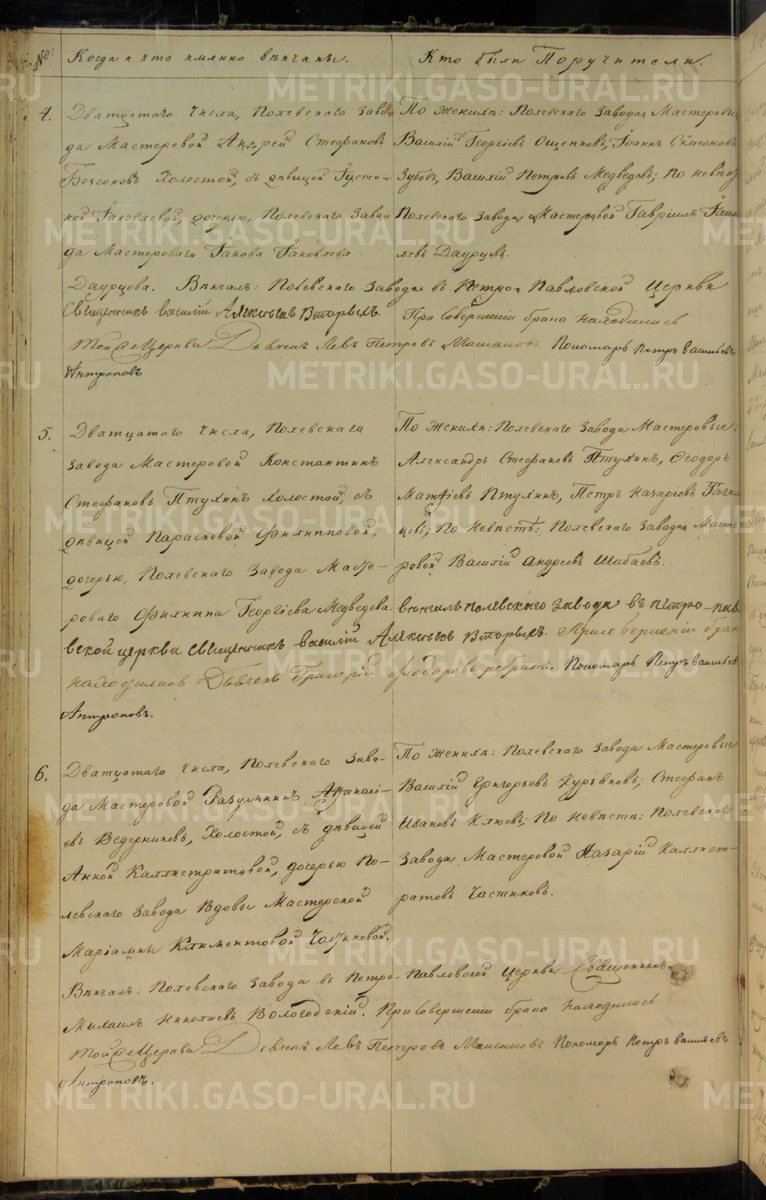 №: Когда и кто имянно вѣнчаны. Кто были Поручители.
4. Дватцатаго числа, Полевскаго заво-
да Мастеровой Андрей Стефановъ
Холостой, съ дѣвицей Іусти-
ной Іаковлевой, дочерью, Полевскаго Заво-
да Мастероваго Іакова Іаковлева
Даурцова. Вѣнчалъ: Полевскаго Завода въ Петро Павловской Церкви
Священникъ василій Алексѣевъ Вторыхъ. При Совершеніи брака находились
той Церкви Дьячекъ Левъ Петровъ Пономарь Петръ васильевъ
Антроповъ
По женихѣ: Полевскаго Завода Мастеровые
Василій Георгіевъ Ощепковъ, Іоаннъ Симеоновъ
Зубовъ, Василій Петровъ Медведевъ; По невѣстѣ
Полевскаго Завода Мастеровой Гавріилъ Іаков-
левъ Даурцовъ.
5. Дватцатаго числа, Полевскаго
завода Мастеровой Константинъ
Стефановъ Птухинъ холостой, съ
дѣвицей Парасковой Филипповой,
дочерью, Полевскаго Завода Масте-
роваго Филиппа Георгіева Медведева вѣнчалъ полевскаго завода въ петро-пав
вской церкви священникъ василій Алексѣевъ Вторыхъ. При совершеніи брака
находились Дьячекъ Григорій Феодоровъ Пономарь Петръ васильевъ
Антроповъ.
По женихѣ: Полевскаго Завода Мастеровые:
Александръ Стефановъ Птухинъ, Феодоръ
Матѳіевъ Птухинъ, Петръ Назаріевъ
цовъ; По Невѣстѣ: Полевскаго Завода Масте-
ровой Василій Андреевъ Шибаевъ.
6. Дватцатаго числа, Полевскаго Заво-
да Мастеровой Разумникъ Афанасі-
евъ Ведерниковъ, Холостой, съ дѣвицей
Анной Каллистратовой, дочерью По-
левскаго Завода Вдовы Мастерской
Маріамны Климентовой Частиковой.
Вѣнчалъ: Полевскаго Завода въ Петро-Павловской Церкви Священникъ
Михаилъ Николаевъ Вологодскій. При Совершеніи брака находились
той Церкви Дьячекъ Левъ Петровъ Пономарь Петръ васильевъ
Антроповъ.
По женихѣ: Полевскаго Завода Мастеровые
Василій Григорьевъ Стефанъ
Ивановъ Клюевъ; По Невѣстѣ: Полевскаго
Завода Мастеровой Назарій Каллист-
ратовъ Частиковъ.
METRIKI.GASO-URAL.RU